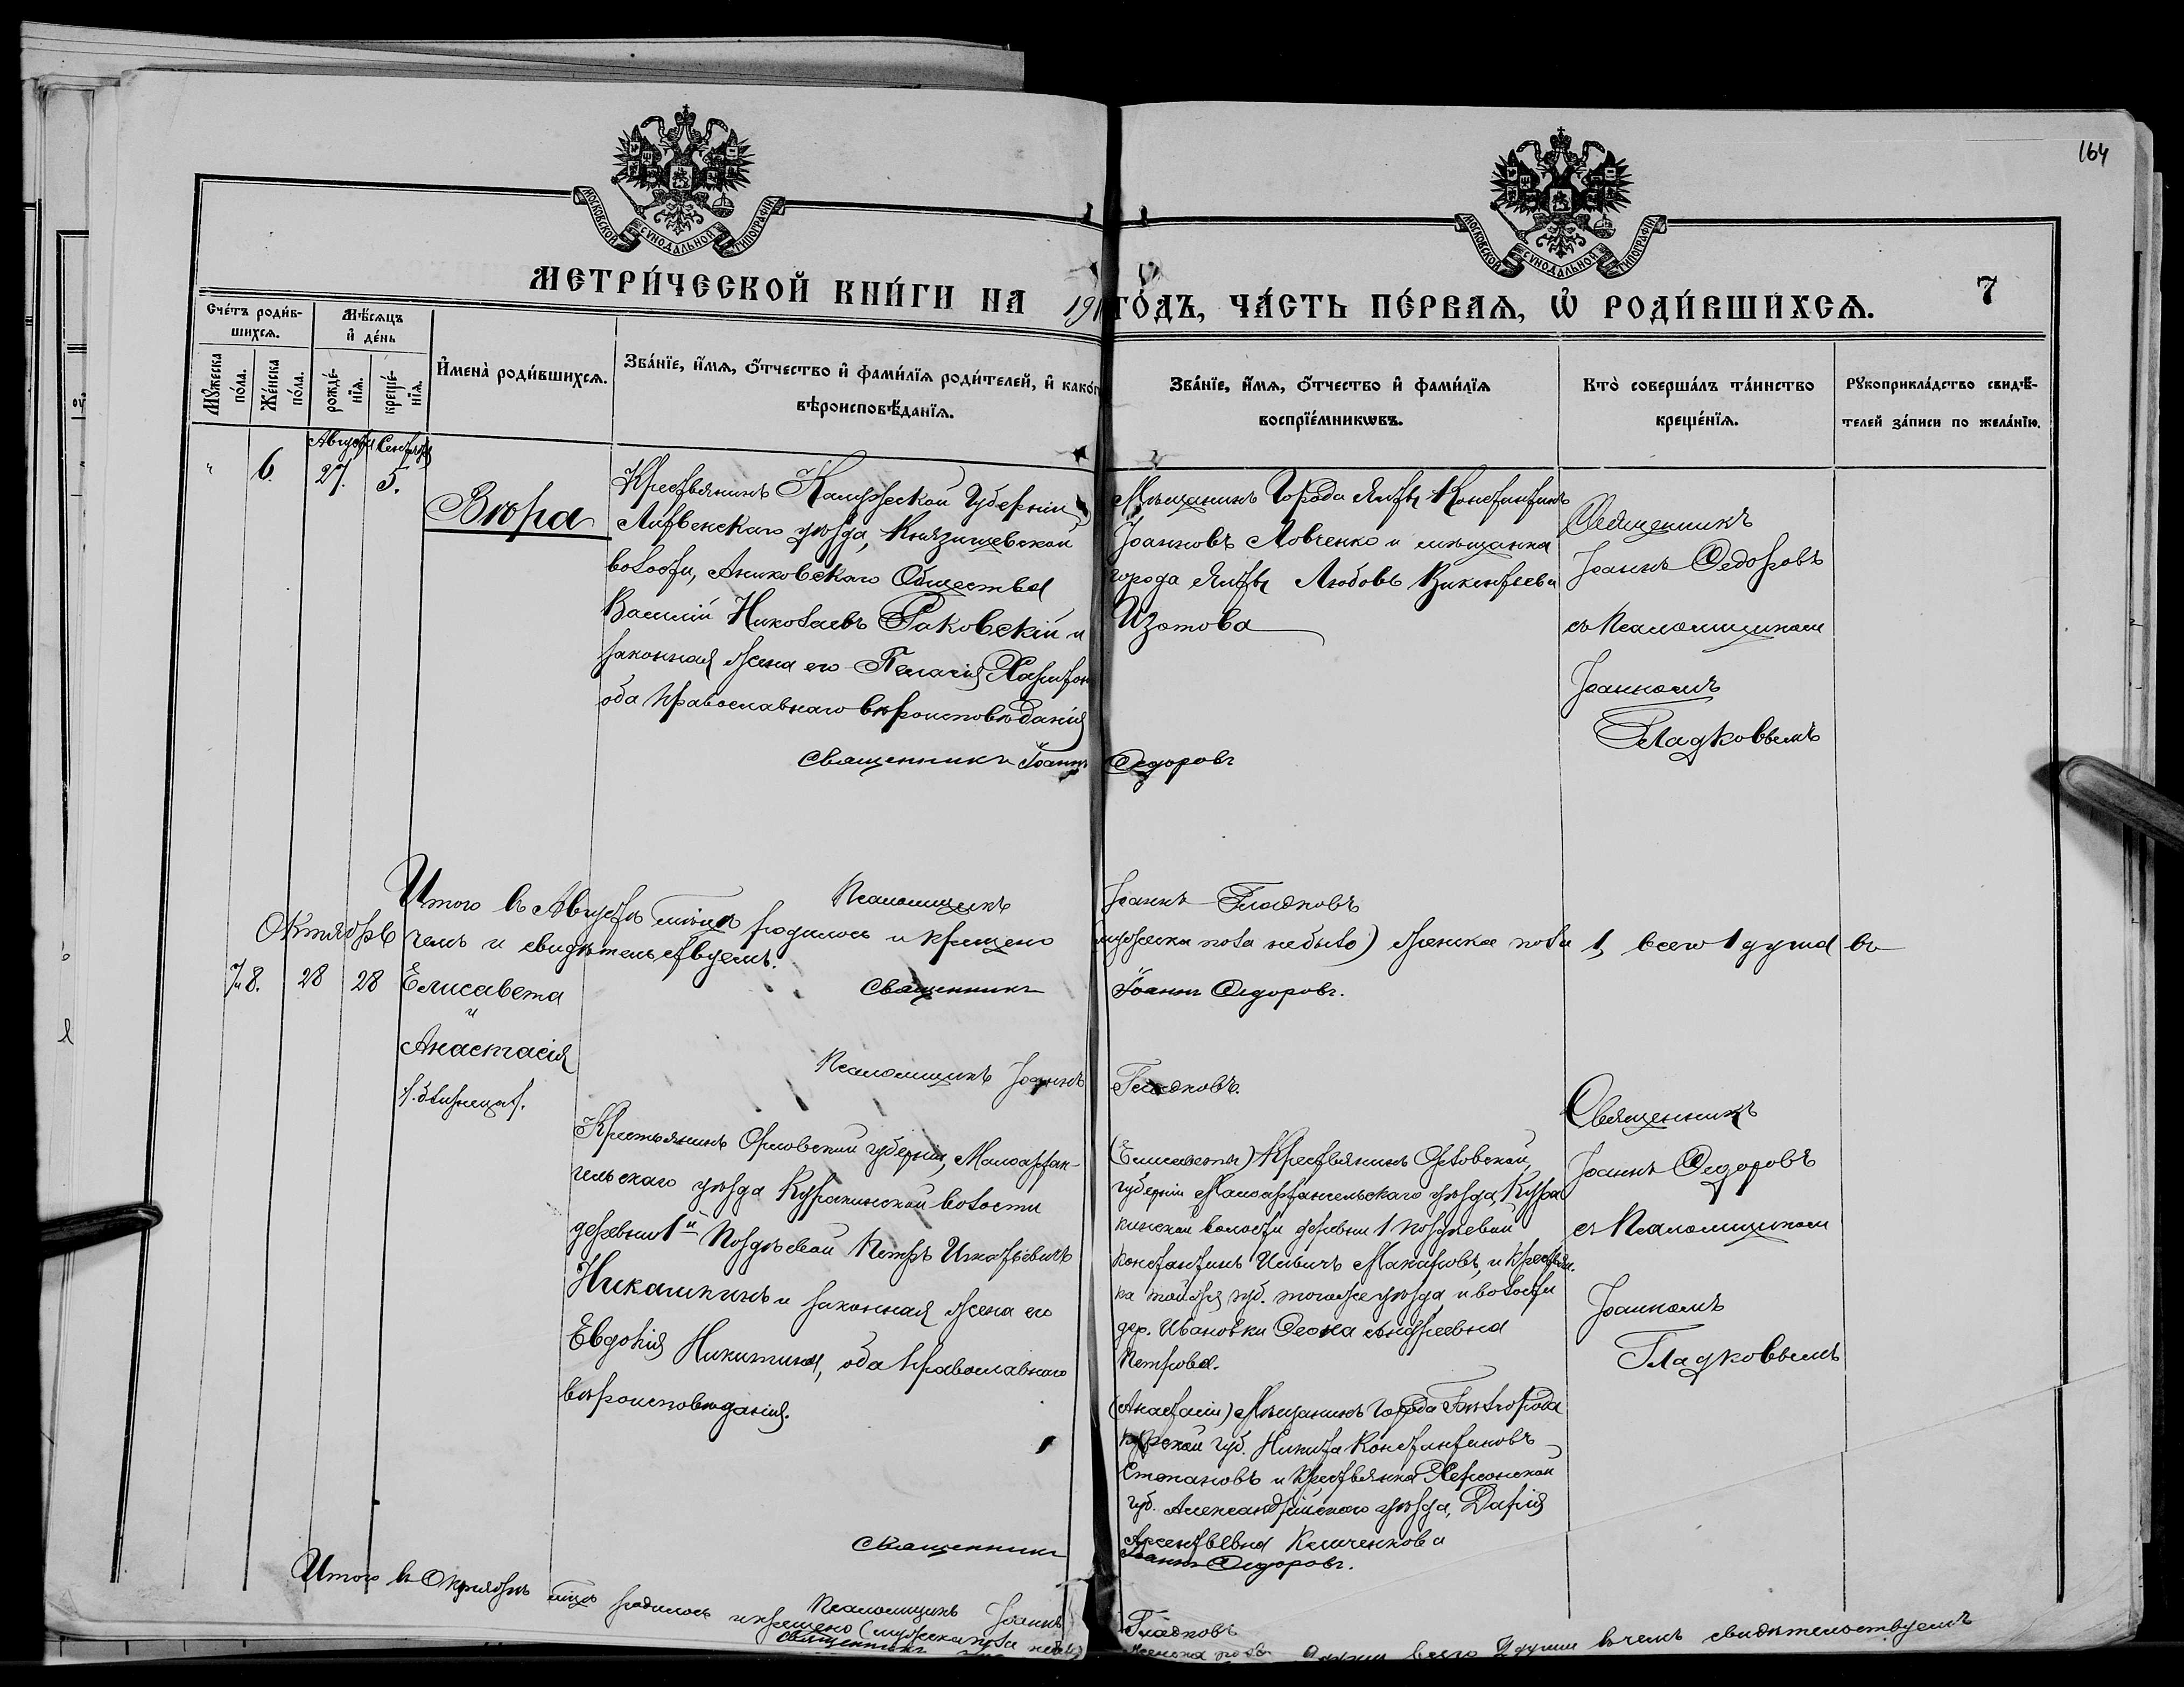 164
МОСКОВСКОЙ СѴНОДАЛЬНОЙ ТИПОГРАФІИ
МОСКОВСКОЙ СѴНОДАЛЬНОЙ ТИПОГРАФІИ
МЕТРИ́ЧЕСКОЙ КНИ́ГИ НА 191
ГО́ДЪ, ЧА́СТЬ ПЕ́РВАЯ, Ѡ҆ РОДИ́ВШИХСЯ.
7
Сче́тъ роди́в-
шихся.
Мѣ́сяцъ
и҆ де́нь
Мꙋ́жеска
по́ла.
Же́нска
по́ла.
рожде́-
нія.
креще́-
нія.
И҆мена̀ роди́вшихся.
Зва́нїе, и҆́мя, ѻ҆́тчество и҆ фами́лїя роди́телей, и҆ како́г
вѣроисповѣ́данїя.
Зва́нїе, и҆́мя, ѻ҆́тчество и҆ фами́лїя
воспрїе́мникѡвъ.
Кто̀ соверша́лъ та́инство
креще́нїя.
Рꙋкоприкла́дство свидѣ́-
телей за́писи по жела́нїю.
Августа Сентября
" 6. 27. 5.
Вѣра
Крестьянинъ Калужской Губерніи
уѣзда, Князищевской
волости, Аниковскаго Общества
Василій Николаевъ Раковскій и
законная жена его Пелагія Харитон
оба православнаго вѣроисповѣданія
Священникъ Іоаннъ
Ѳедоровъ
Мѣщанинъ Города Ялты Константинъ
Іоанновъ Ловченко и мѣщанка
города Ялты Любовь Викентьева
Изотова
Священникъ
Іоаннъ Ѳедоровъ
съ Псаломщикомъ
Іоанномъ
Гладковымъ
Псаломщикъ
Іоаннъ Гладковъ
Итого въ Августѣ мѣсяцѣ родилось и крещено
мужеска пола не было) женска пола 1, всего 1 душа въ
чемъ и свидѣтельствуемъ.
Священникъ
Іоаннъ Ѳедоровъ.
Псаломщикъ Іоаннъ
Гладковъ.
Октябрь
7 и 8. 28 28
Елисавета
и
Анастасія
/близнецы/.
Крестьянинъ Орловской губерніи, Малоархан-
гельскаго уѣзда Куракинской волости
деревни 1й Поздѣевой Петръ Игнатьевичъ
Никашкинъ и законная жена его
Евдокія Никитина, оба православнаго
вѣроисповѣданія.
(Елисаветы) Крестьянинъ Орловской
губерніи Малоархангельскаго уѣзда, Кура
кинской волости деревни 1 Поздѣевой
Константинъ Макаровъ, и крестьян.
ка той же губ. того же уѣзда и волости
дер. Ивановки Андреевна
Петрова.
(Анастасіи) Мѣщанинъ Города Бѣлгорода
Курской Губ. Никита Константиновъ
Степановъ и крестьянка Херсонской
губ. Александрійскаго уѣзда, Дарія
Арсентьевна Клименкова
Священникъ
Іоаннъ Ѳедоровъ
съ Псаломщикомъ
Іоанномъ
Гладковымъ
Священникъ
Іоаннъ Ѳедоровъ.
Псаломщикъ Іоаннъ
Гладковъ
Итого въ Октябрѣ мѣсяцѣ родилось и крещено (мужеска пола не было)
женска пола 2 души всего 2 души въ чемъ свидѣтельствуемъ
Священникъ